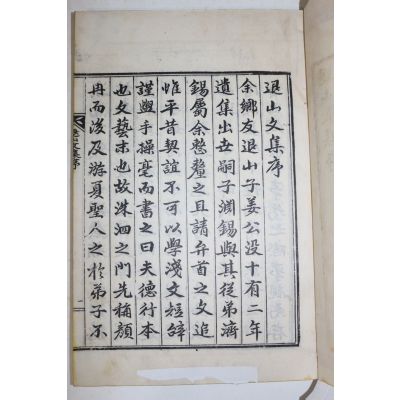 退山文集序
余鄉友退山子姜公沒十有二年
遺集出世嗣子淵錫與其從弟濟
錫屬余整釐之且請弁首之文追
惟平昔契誼不可以學淺文短辭
謹與手操毫而書之曰夫德行本
也文藝末也故洙泗之門先稱顔
冉而後及游夏聖人之於弟子不
退山文集序